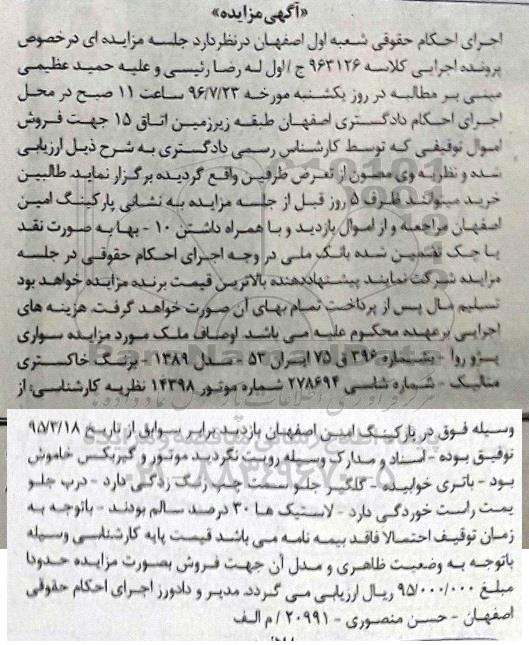 «آگهی مزایده»
اجرای احکام حقوقی شعبه اول اصفهان درنظردارد جلسه مزایده ای درخصوص
پرونده اجرایی کلاسه ۹۶۳۱۲۶ ج/اول له رضا رئیسی و علیه حمید عظیمی
مبنی بر مطالبه در روز یکشنبه مورخه ۹۶/۷/۲۳ ساعت ۱۱ صبح در محل
اجرای احکام دادگستری اصفهان طبقه زیرزمین اتاق ۱۵ جهت فروش
اموال توقیفی که توسط کارشناس رسمی دادگستری به شرح ذیل ارزیابی
شده و نظریه وی مصون از تعرض طرفین واقع گردیده برگزار نماید. طالبین
خرید میتوانند ظرف ۵ روز قبل از جلسه مزایده به نشانی پارکینگ امین
اصفهان مراجعه و از اموال بازدید و با همراه داشتن ۱۰ - بها به صورت نقد
یا چک تضمین شده بانک ملی در وجه اجرای احکام حقوقی در جلسه
مزایده شرکت نمایند پیشنهاددهنده بالاترین قیمت برنده مزایده خواهد بود
تسلیم مال پس از پرداخت تمام بهای آن صورت خواهد گرفت. هزینه های
اجرایی برعهده محکوم علیه می باشد. اوصاف ملک مورد مزایده سواری
پژو روا - بشماره ۳۹۶ ق ۷۵ ایران ۵۳ - مدل ۱۳۸۹ - برنگ خاکستری
متالیک - شماره شاسی ۲۷۸۶۹۴ شماره موتور ۱۴۳۹۸ نظریه کارشناسی: از
وسیله فوق در پارکینگ امین اصفهان بازدید برابر سوابق از تاریخ ۹۵/۳/۱۸
توقیف بوده - اسناد و مدارک وسیله رویت نگردید موتور و گیربکس خاموش
بود - باتری خوابیده - گلگیر جلو سمت چپ رنگ زدگی دارد - درب جلو
یمت راست خوردگی دارد - لاستیک ها ۳۰ درصد سالم بودند - باتوجه به
زمان توقیف احتمالا فاقد بیمه نامه می باشد قیمت پایه کارشناسی وسیله
باتوجه به وضعیت ظاهری و مدل آن جهت فروش بصورت مزایده حدودا
مبلغ ۹۵/۰۰۰/۰۰۰ ریال ارزیابی می گردد. مدیر و دادورز اجرای احکام حقوقی
اصفهان - حسن منصوری - ۲۰۹۹۱ / م الف